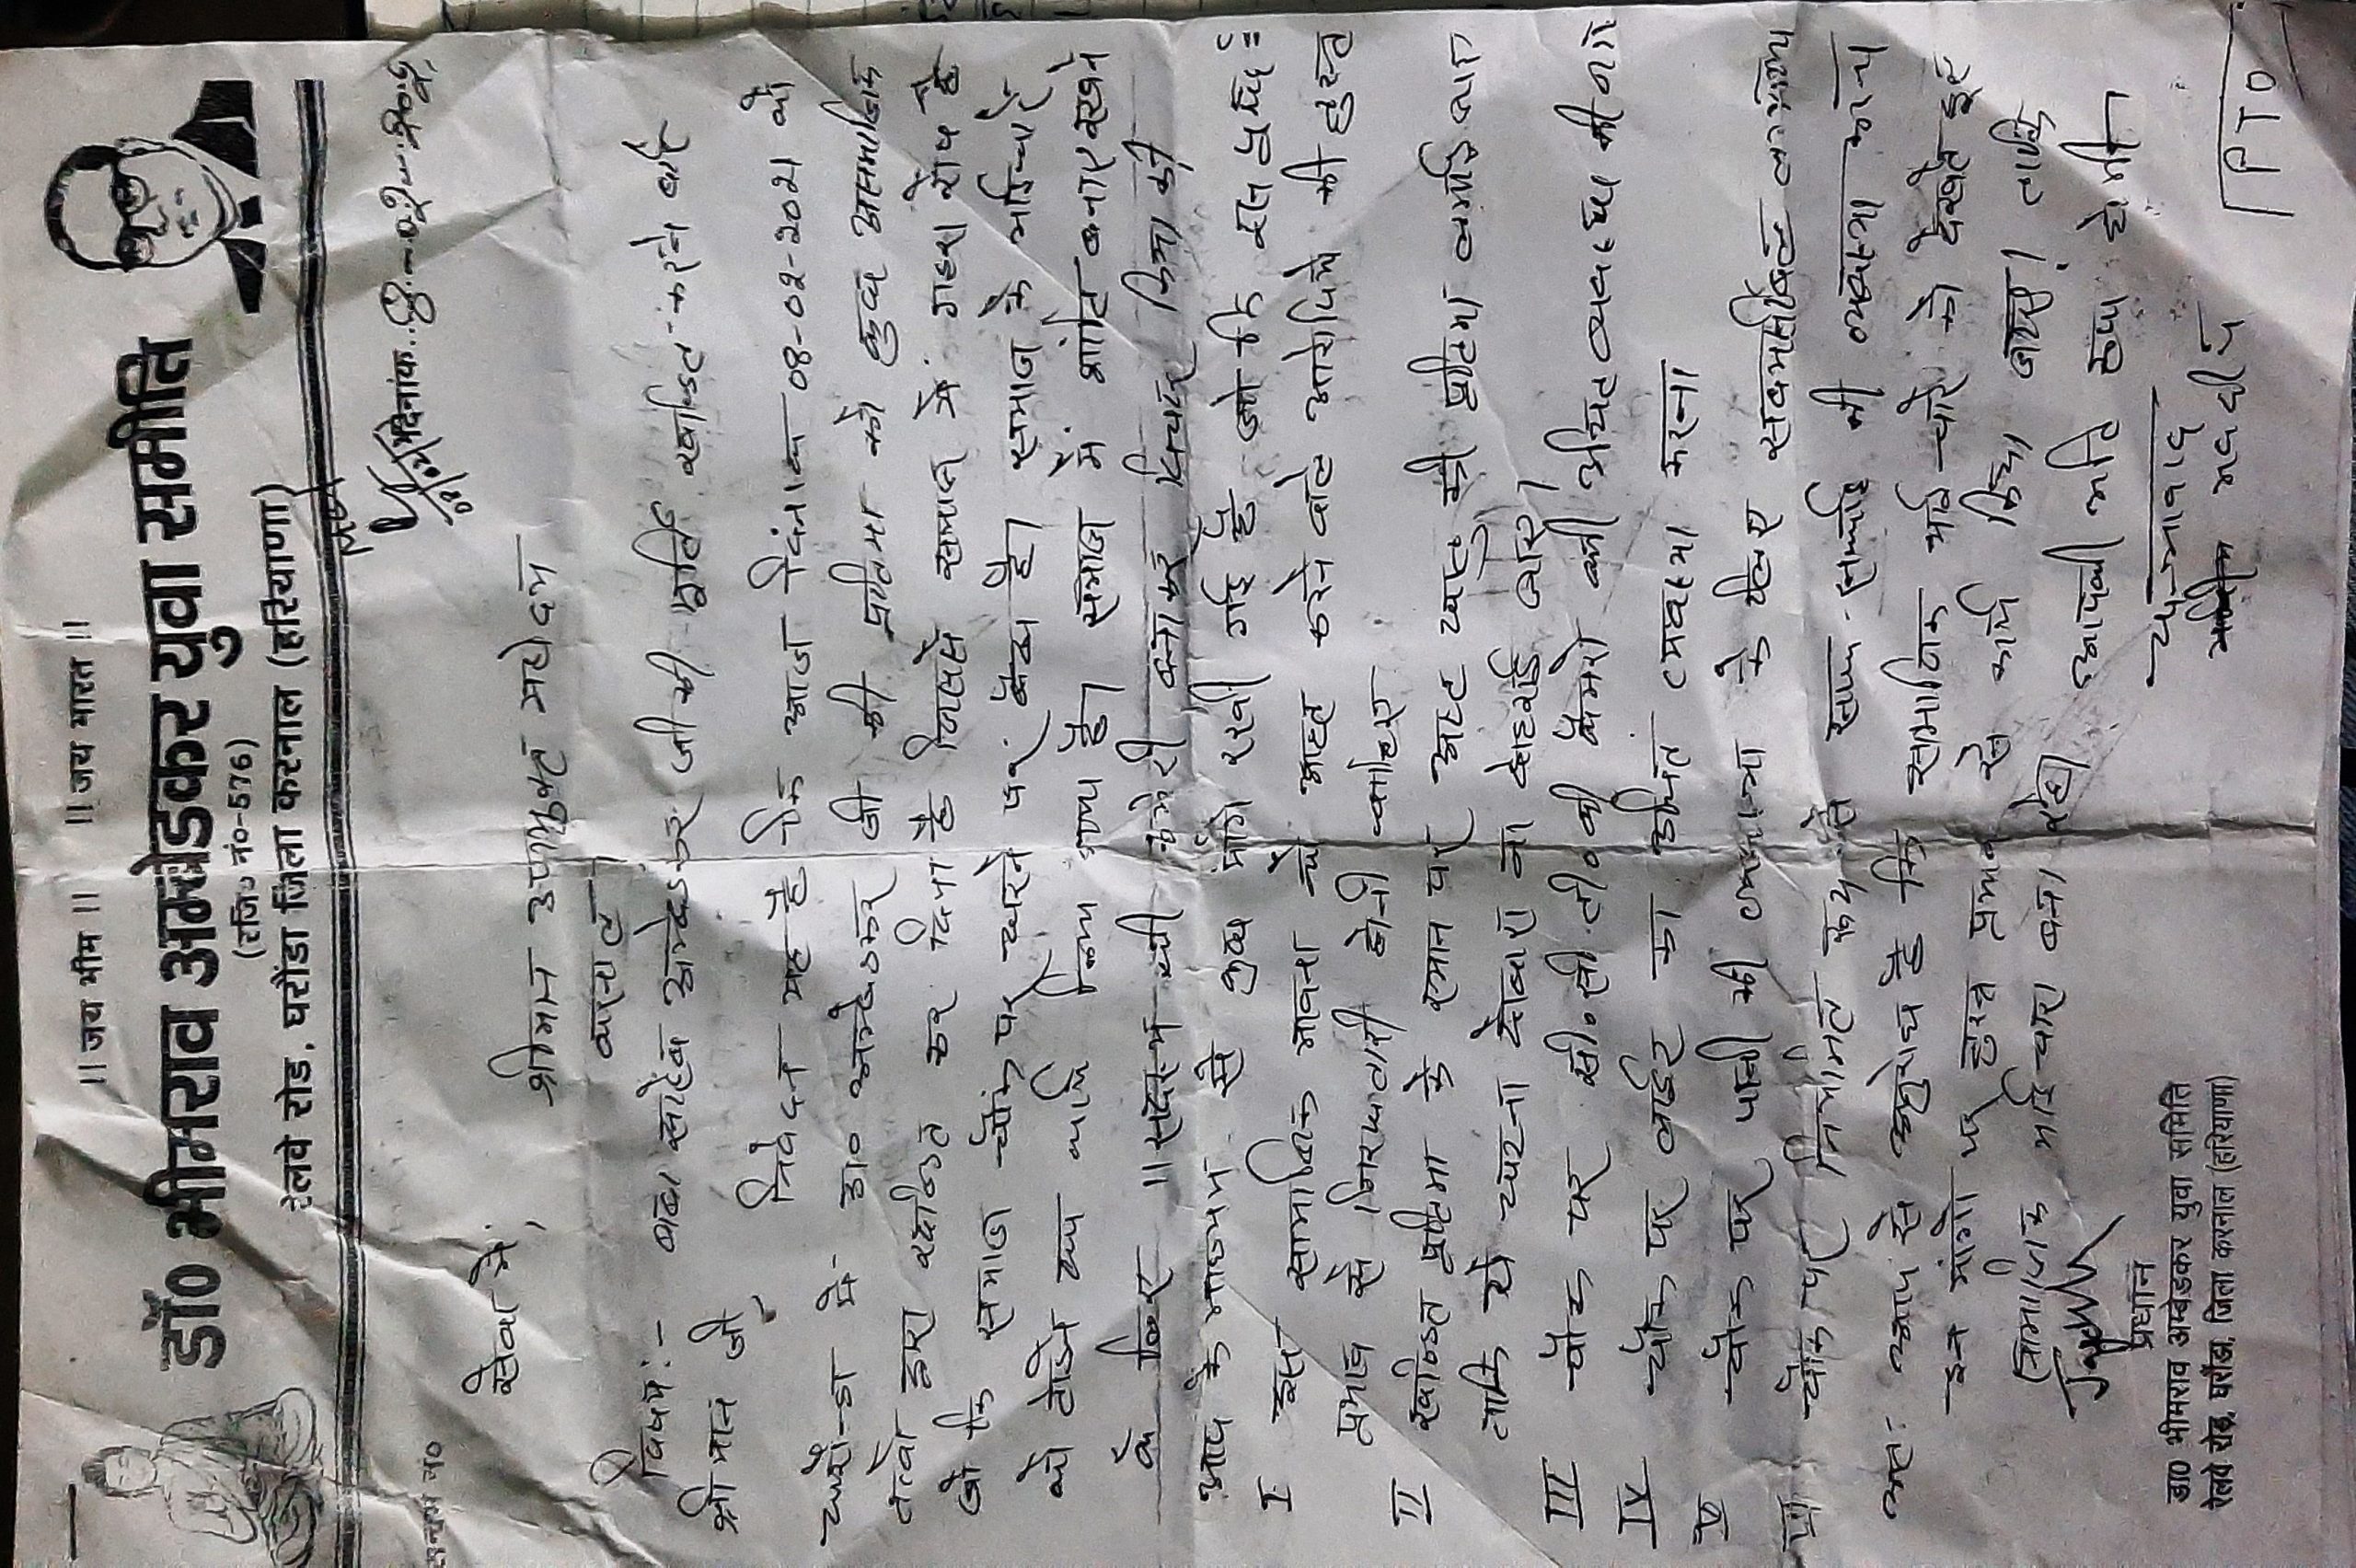 || जय भीम || || जय भारत ||
डॉ० भीमराव अम्बेडकर युवा समीति
(रजि० नं०-576)
रेलवे रोड, घरौंडा जिला करनाल (हरियाणा)
क्रमांक नं० दिनांक..8-02-2021
सेवा में,
श्रीमान उपायुक्त महोदय
करनाल
विषय:- बाबा साहेब अम्बेडकर जी की मूर्ति खण्डित करने बारे
श्री मान जी,
निवेदन यह है कि आज दिनांक 08-02-2021 को
घरौण्डा में डा० अम्बेडकर जी की प्रतिमा को कुछ असमाजिक
तत्वो द्वारा खण्डित कर दिया है जिससे समाज में गहरा रोष है
जो कि समाज चौंक पर धरने पर बैठा है। समाज के
को किया गया है। समाज में शांति बनाए रखने
के लिए
आप के माध्यम से कुछ मांगे रखी गई है जो कि
I इस सामाजिक भावना को आहत करने वाले आरोपियों की तुरन्त
प्रभाव से गिरफ्तारी होनी चाहिए
II खण्डित प्रतिमा के स्थान पर अष्ट धातु की प्रतिमा लगाई जाए
ताकि ये घटना दोबारा ना दोहराई जाए।
III चौंक पर सी.सी.टी.वी कैमरो की उचित व्यवस्था की जाये
IV चौंक पर लाईट का उचित व्यवस्था करना
V चौंक पर पानी की व्यवस्था के लिए सबमर्सिबल लगाया
VI चौंक पर नियमित रूप से साफ-सफाई की व्यवस्था
अत: आप से अनुरोध है कि सामाजिक भाई-चारे को देखते हुए
इन मांगो पर तुरन्त प्रभाव से किया जाए। ताकि
सामाजिक भाई-चारा बना रहे। आपकी अति कृपा होगी
धन्यवाद
प्रधान
डा0 भीमराव अम्बेडकर युवा समिति
रेलवे रोड़, घरौंडा, जिला करनाल (हरियाणा)
PTO